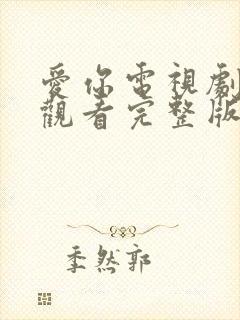 愛你電視劇
觀看完整版
季然郭